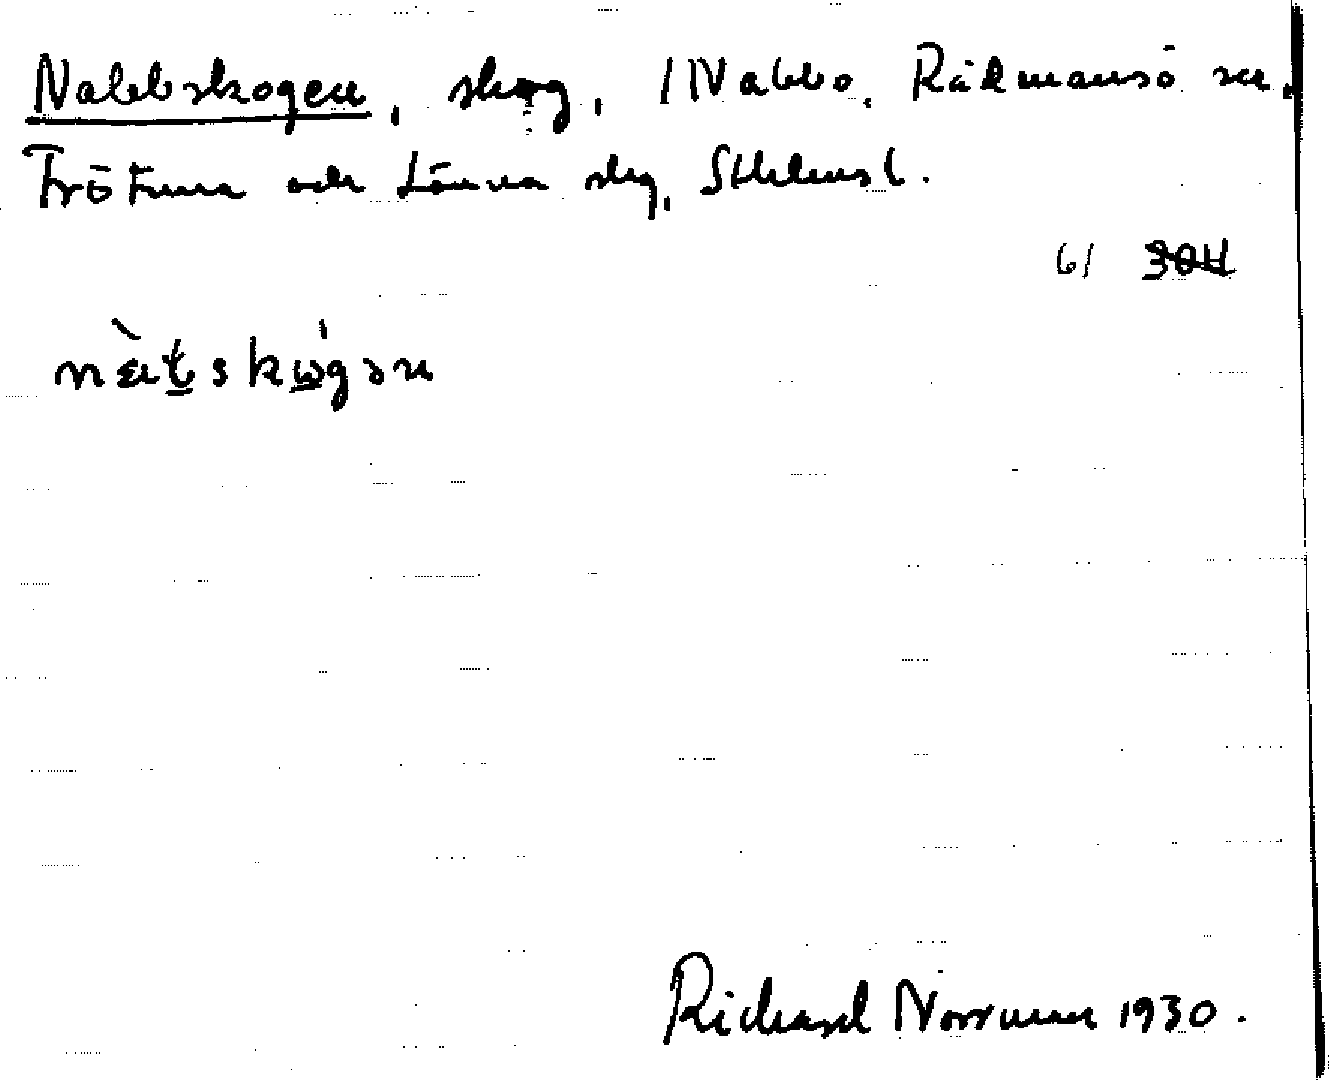 Nabbskogen, skog, 1 Nabbo, Rådmansö sn.
Frötuna och Länna slg, Sthlmsl.
61 304
Richard Norrman 1930.